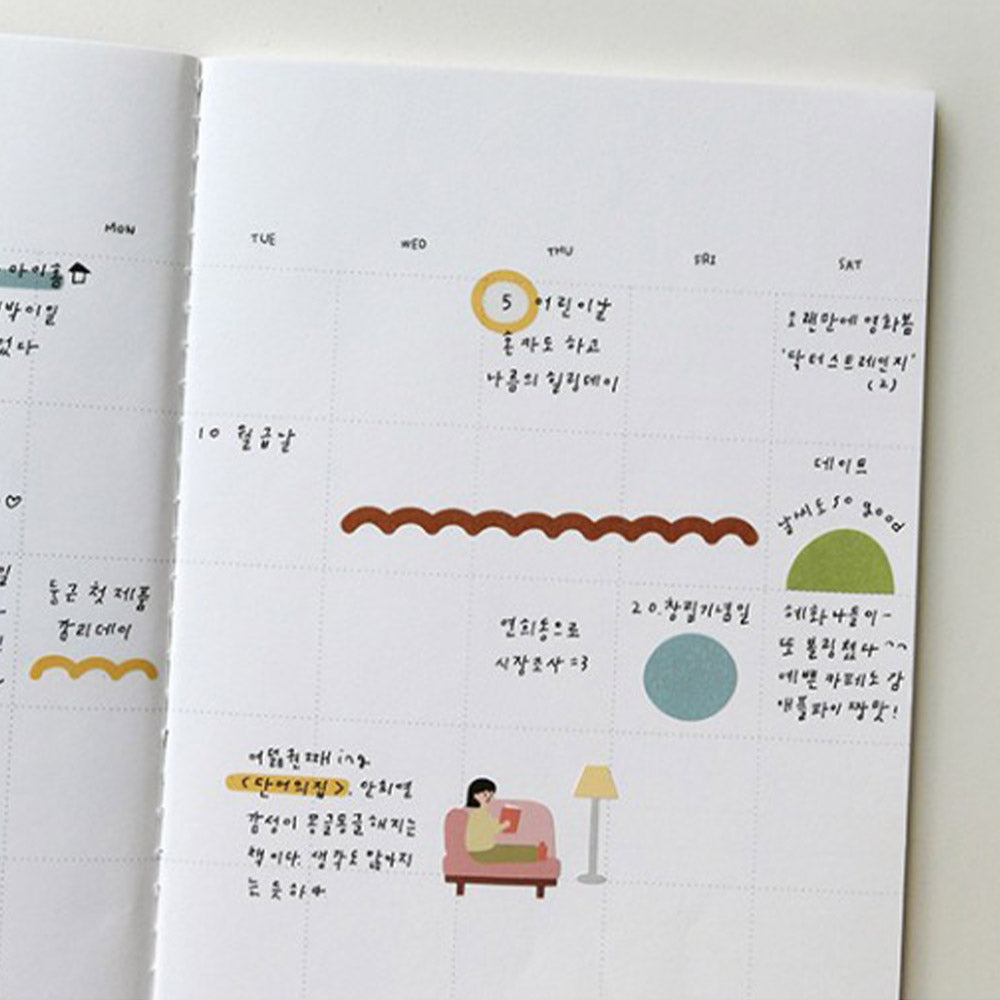 MON
TUE
WED
THU
FRI
SAT
아이홈
박이일
었다
5 어린이날
혼카도 하고
나름의 힐링데이
오랜만에 영화봄
'닥터스트레인지'
(2)
10 월급날
데이트
날씨도 so good
둥근 첫 제품
감리데이
연희동으로
시장조사 =3
20. 창립기념일
혜화나들이~
또 볼링쳤다^^
예쁜 카페도 감
애플파이 짱맛!
여덟권째 ing
<단어의집>. 안희연
감성이 몽글몽글해지는
책이다. 생각도 많아지
는 듯 하다